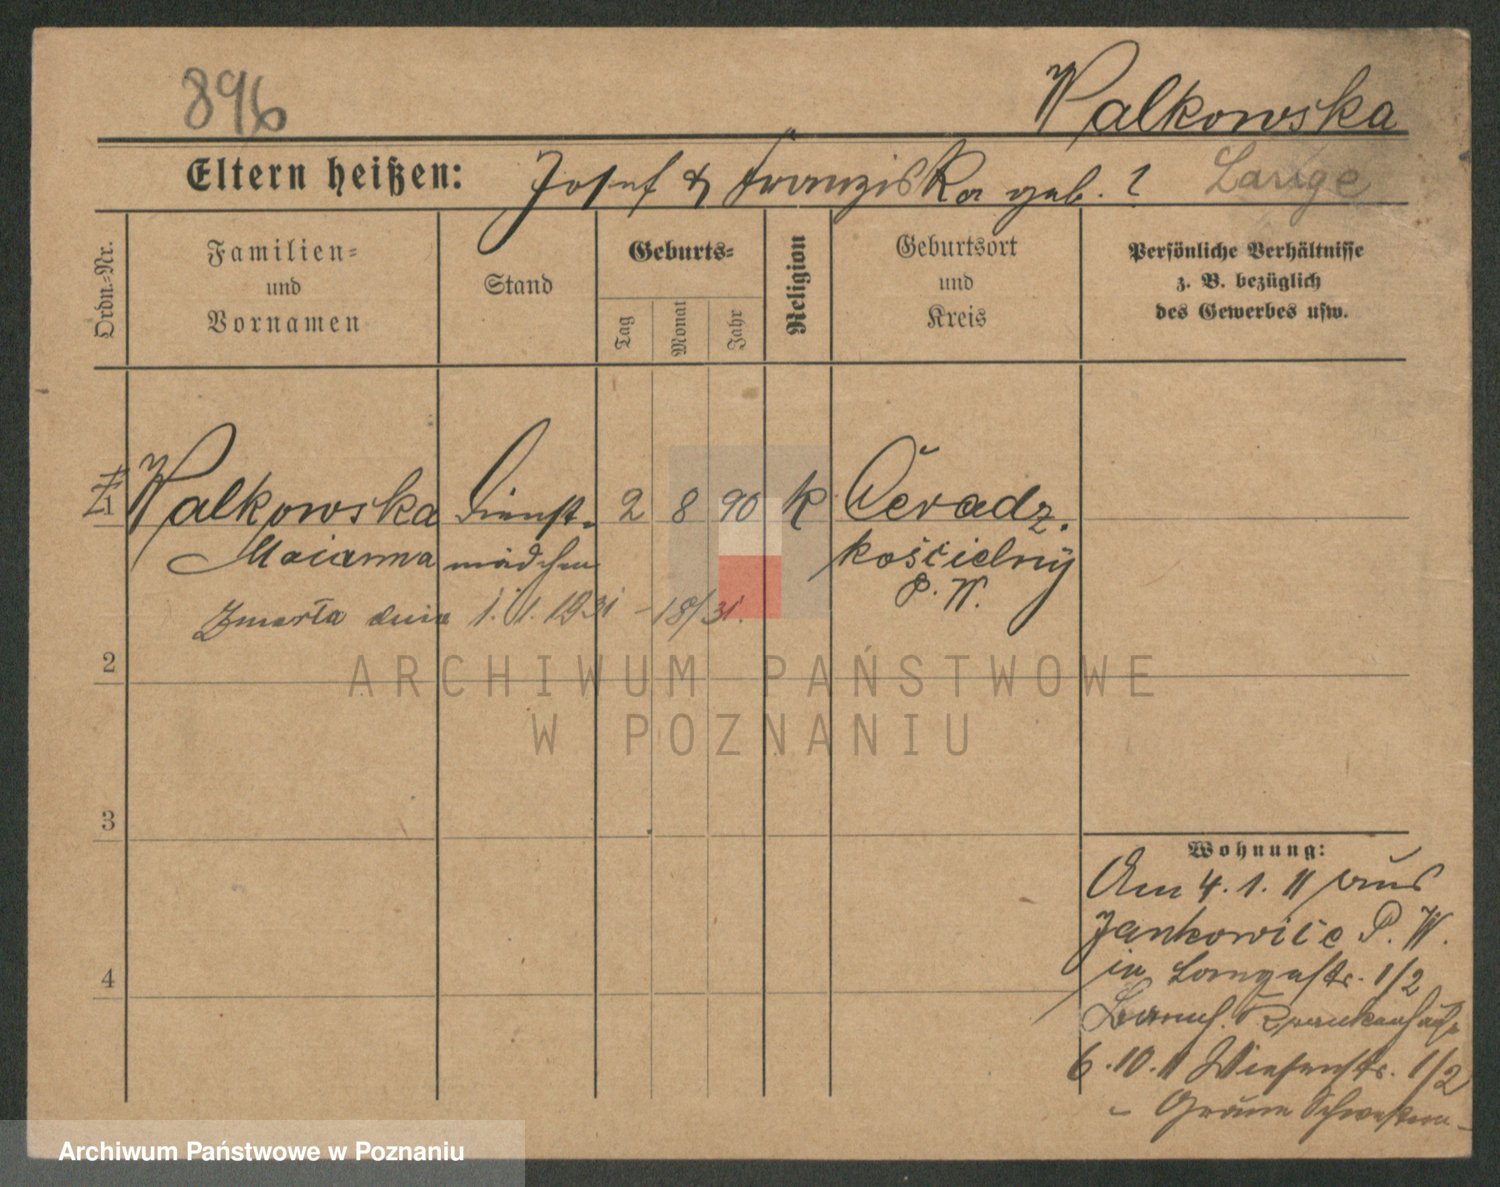 896
Walkowska
Eltern heißen: Josef & Franziska geb. ? Lange
Ordn.-Nr.
Familien-
und
Vornamen
Stand
Geburts-
Tag
Monat
Jahr
Religion
Geburtsort
und
Kreis
Persönliche Verhältnisse
z. B. bezüglich
des Gewerbes usw.
1 Walkowska Dienst- 2 8 90 k Ceradz.
Marianna mädchen kościelny
P. W.
Zmarła dnia 1. 1. 1931 - 18/31.
2
ARCHIWUM PAŃSTWOWE
W POZNANIU
3
4
Wohnung:
Am 4. 1. 11 aus
Jankowice P. W.
in Langestr. 1/2
Krankenhaus
6. 10. 11 Wiesenstr. 1/2
- Graue Schwestern -
Archiwum Państwowe w Poznaniu